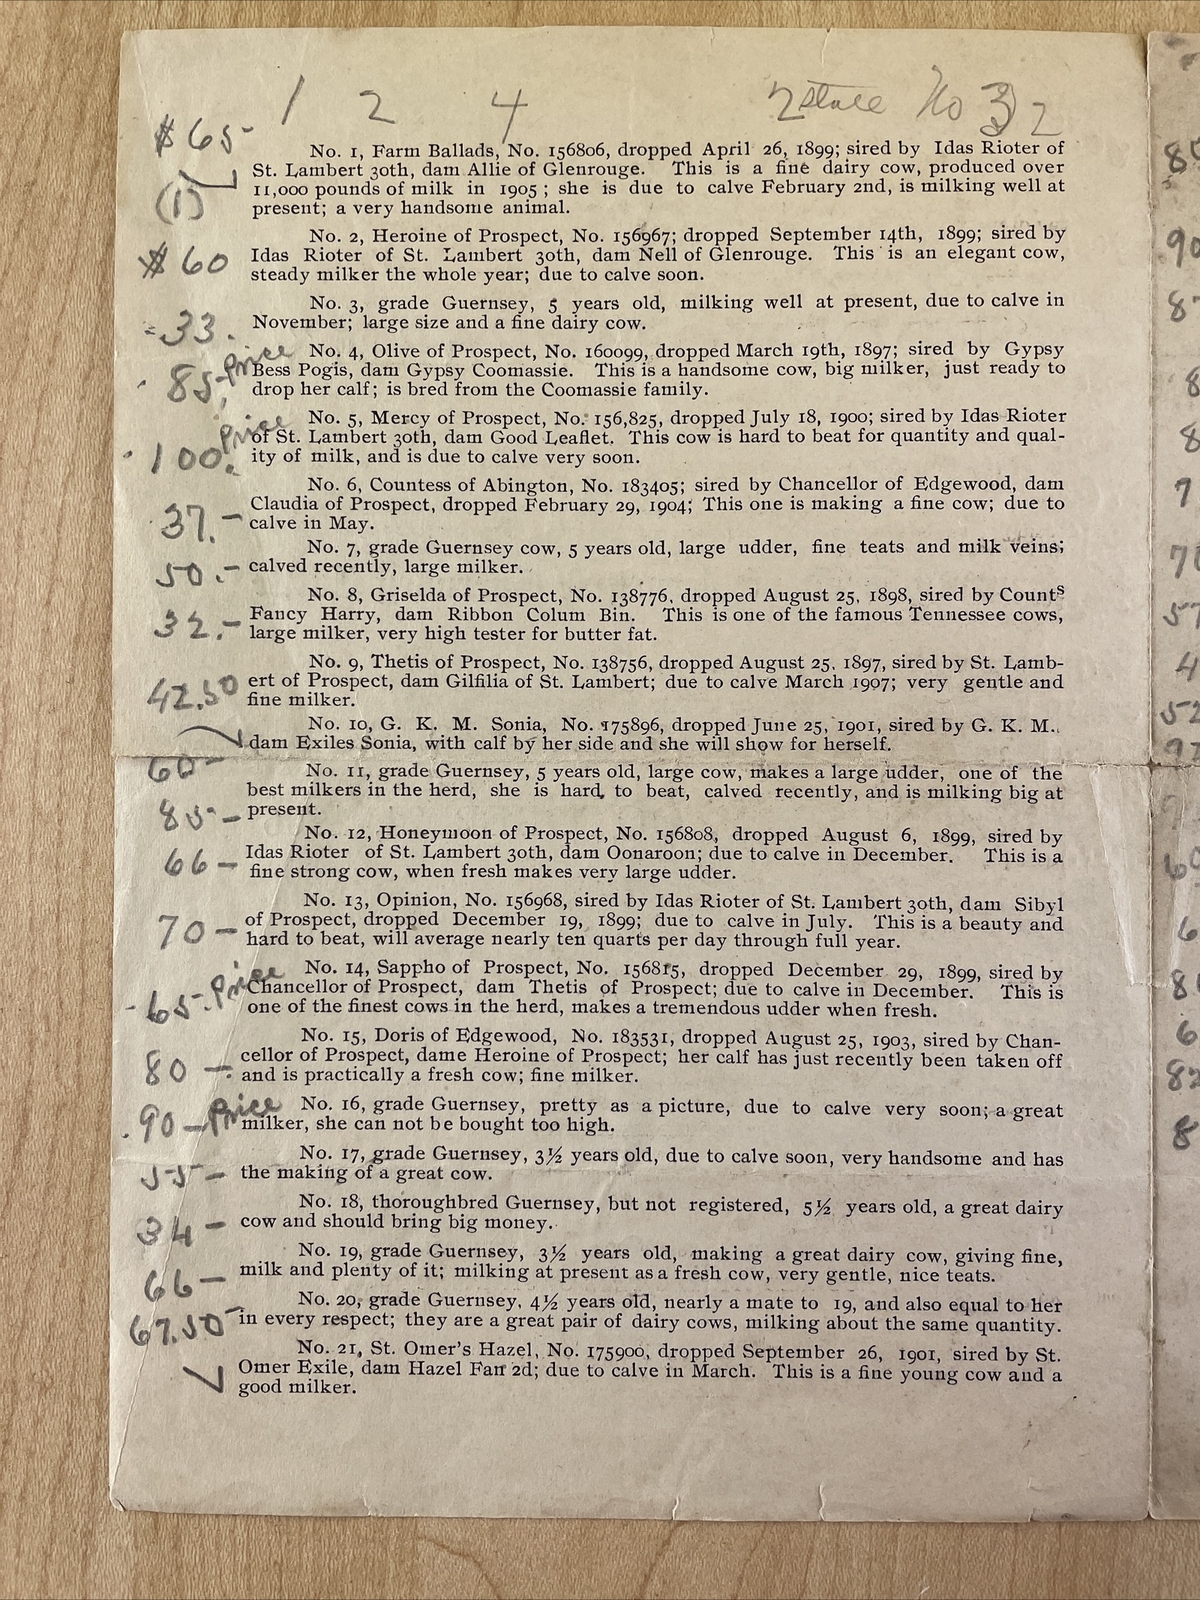 1 2 4 2 stall No 3 2
$65-
(1)
No. 1, Farm Ballads, No. 156806, dropped April 26, 1899; sired by Idas Rioter of
St. Lambert 30th, dam Allie of Glenrouge. This is a fine dairy cow, produced over
11,000 pounds of milk in 1905; she is due to calve February 2nd, is milking well at
present; a very handsome animal.
$60
No. 2, Heroine of Prospect, No. 156967; dropped September 14th, 1899; sired by
Idas Rioter of St. Lambert 30th, dam Nell of Glenrouge. This is an elegant cow,
steady milker the whole year; due to calve soon.
33.
No. 3, grade Guernsey, 5 years old, milking well at present, due to calve in
November; large size and a fine dairy cow.
85. Price
No. 4, Olive of Prospect, No. 160099, dropped March 19th, 1897; sired by Gypsy
Bess Pogis, dam Gypsy Coomassie. This is a handsome cow, big milker, just ready to
drop her calf; is bred from the Coomassie family.
100. Price
No. 5, Mercy of Prospect, No. 156,825, dropped July 18, 1900; sired by Idas Rioter
of St. Lambert 30th, dam Good Leaflet. This cow is hard to beat for quantity and qual-
ity of milk, and is due to calve very soon.
37.-
No. 6, Countess of Abington, No. 183405; sired by Chancellor of Edgewood, dam
Claudia of Prospect, dropped February 29, 1904; This one is making a fine cow; due to
calve in May.
50.-
No. 7, grade Guernsey cow, 5 years old, large udder, fine teats and milk veins;
calved recently, large milker.
32.-
No. 8, Griselda of Prospect, No. 138776, dropped August 25, 1898, sired by Counts
Fancy Harry, dam Ribbon Colum Bin. This is one of the famous Tennessee cows,
large milker, very high tester for butter fat.
42.50
No. 9, Thetis of Prospect, No. 138756, dropped August 25, 1897, sired by St. Lamb-
ert of Prospect, dam Gilfilia of St. Lambert; due to calve March 1907; very gentle and
fine milker.
60-
No. 10, G. K. M. Sonia, No. 175896, dropped June 25, 1901, sired by G. K. M.,
dam Exiles Sonia, with calf by her side and she will show for herself.
85-
No. 11, grade Guernsey, 5 years old, large cow, makes a large udder, one of the
best milkers in the herd, she is hard to beat, calved recently, and is milking big at
present.
66-
No. 12, Honeymoon of Prospect, No. 156808, dropped August 6, 1899, sired by
Idas Rioter of St. Lambert 30th, dam Oonaroon; due to calve in December. This is a
fine strong cow, when fresh makes very large udder.
70-
No. 13, Opinion, No. 156968, sired by Idas Rioter of St. Lambert 30th, dam Sibyl
of Prospect, dropped December 19, 1899; due to calve in July. This is a beauty and
hard to beat, will average nearly ten quarts per day through full year.
65- Price
No. 14, Sappho of Prospect, No. 156815, dropped December 29, 1899, sired by
Chancellor of Prospect, dam Thetis of Prospect; due to calve in December. This is
one of the finest cows in the herd, makes a tremendous udder when fresh.
80-
No. 15, Doris of Edgewood, No. 183531, dropped August 25, 1903, sired by Chan-
cellor of Prospect, dame Heroine of Prospect; her calf has just recently been taken off
and is practically a fresh cow; fine milker.
90- Price
No. 16, grade Guernsey, pretty as a picture, due to calve very soon; a great
milker, she can not be bought too high.
55-
No. 17, grade Guernsey, 3½ years old, due to calve soon, very handsome and has
the making of a great cow.
34-
No. 18, thoroughbred Guernsey, but not registered, 5½ years old, a great dairy
cow and should bring big money.
66-
No. 19, grade Guernsey, 3½ years old, making a great dairy cow, giving fine,
milk and plenty of it; milking at present as a fresh cow, very gentle, nice teats.
67.50
No. 20, grade Guernsey, 4½ years old, nearly a mate to 19, and also equal to her
in every respect; they are a great pair of dairy cows, milking about the same quantity.
No. 21, St. Omer's Hazel, No. 175900, dropped September 26, 1901, sired by St.
Omer Exile, dam Hazel Fan 2d; due to calve in March. This is a fine young cow and a
good milker.